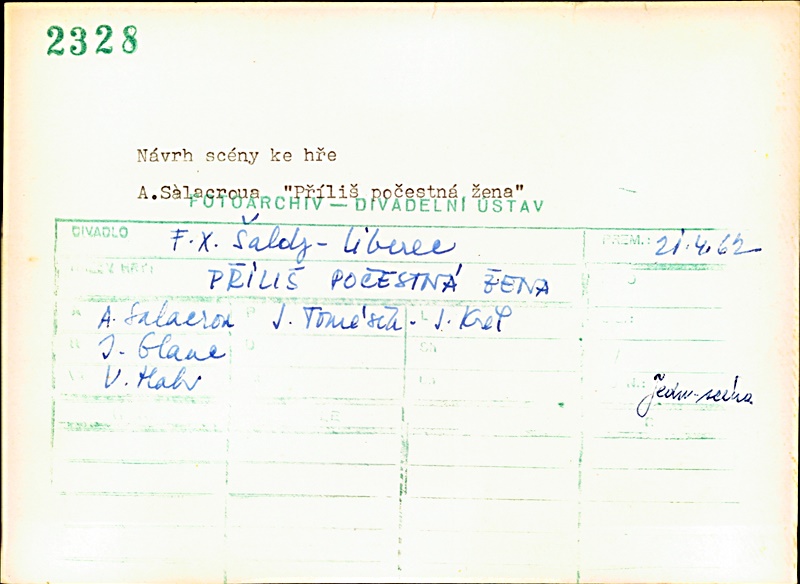 2328
Návrh scény ke hře
A.Sàlacroua "Příliš počestná žena"
FOTOARCHIV — DIVADELNÍ ÚSTAV
DIVADLO F.X. Šaldy - Liberec PREM.: 21.4.62
PŘÍLIŠ POČESTNÁ ŽENA
A. Salacrou J. Tomášek - J. Král
J. Glanc
V. Mohr